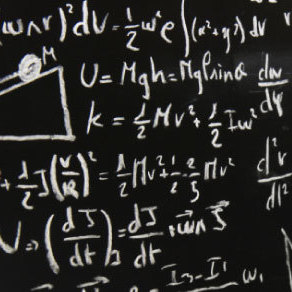 (w∧r)² dV = ½ w² ρ ∫(x²+y²) dV
M
U = Mgh = Mgl sinα dw/dy
k = ½ Mv² + ½ Iω²
+ ½ J(v/R)² = ½ Mv² + ½ · ⅖ Mv² d²r/dt²
V => (dJ/dt)₃ = dJ/dt + w∧J
I₃-I¹ w₁